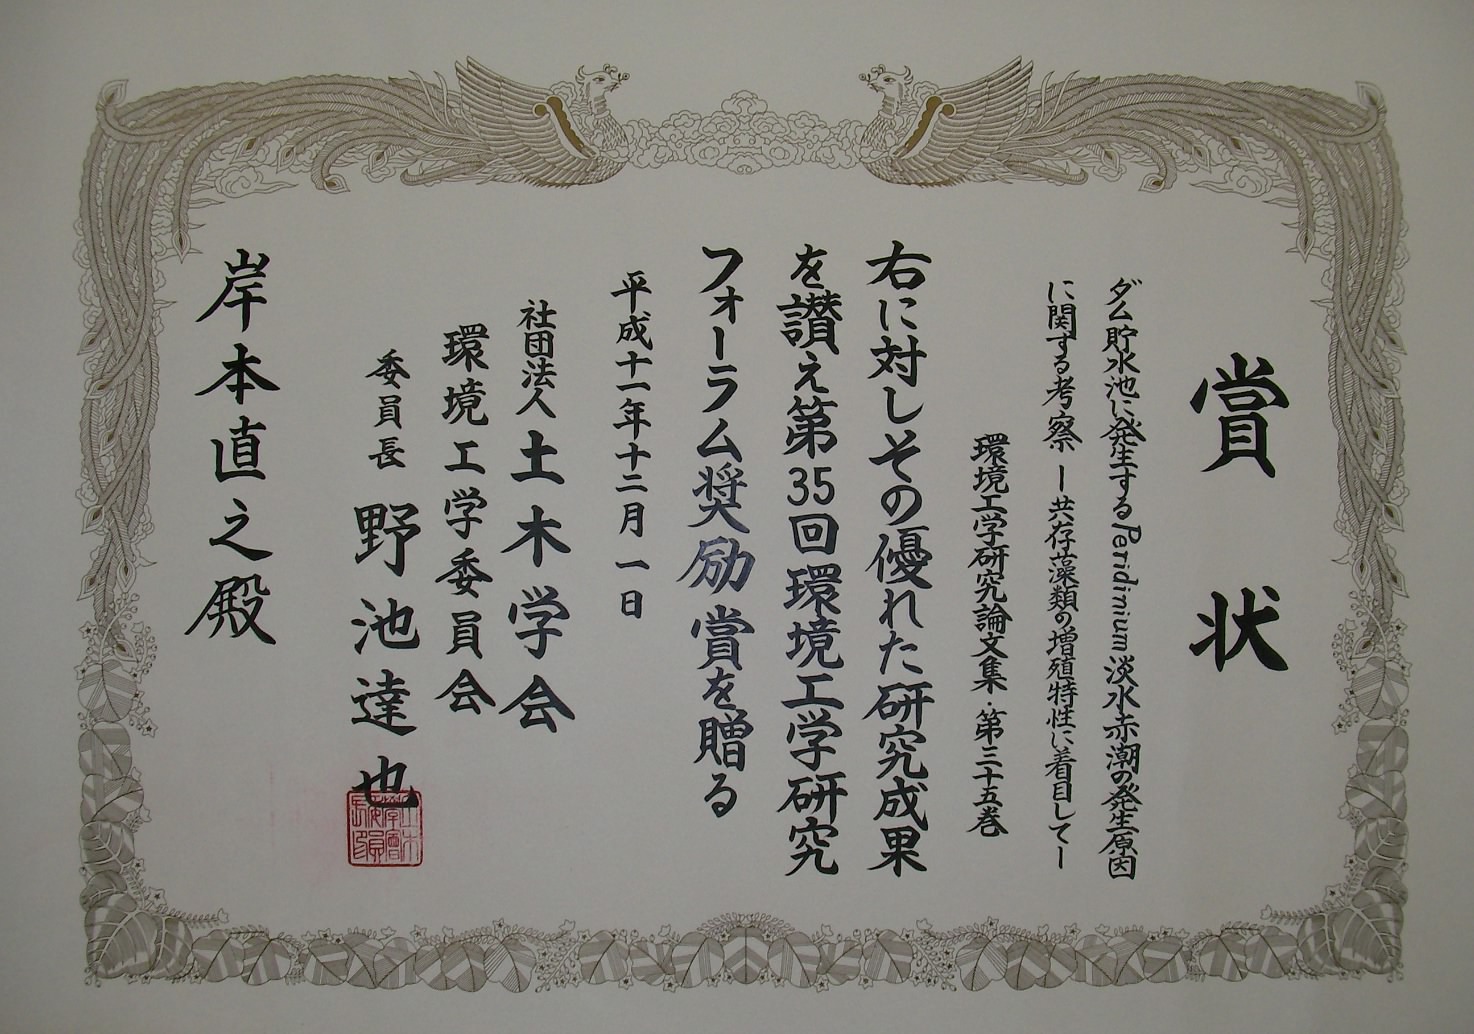 賞状
ダム貯水池に発生するPeridinium淡水赤潮の発生原因
に関する考察ー共存藻類の増殖特性に着目してー
環境工学研究論文集・第三十五巻
右に対しその優れた研究成果
を讃え第35回環境工学研究
フォーラム奨励賞を贈る
平成十一年十二月一日
社団法人土木学会
環境工学委員会
委員長野池達也
岸本直之殿